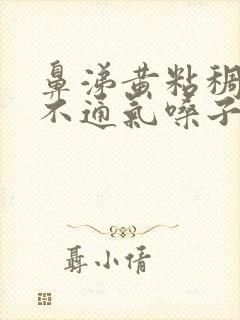 鼻涕黄粘稠
不通氣嗓子
聶小倩